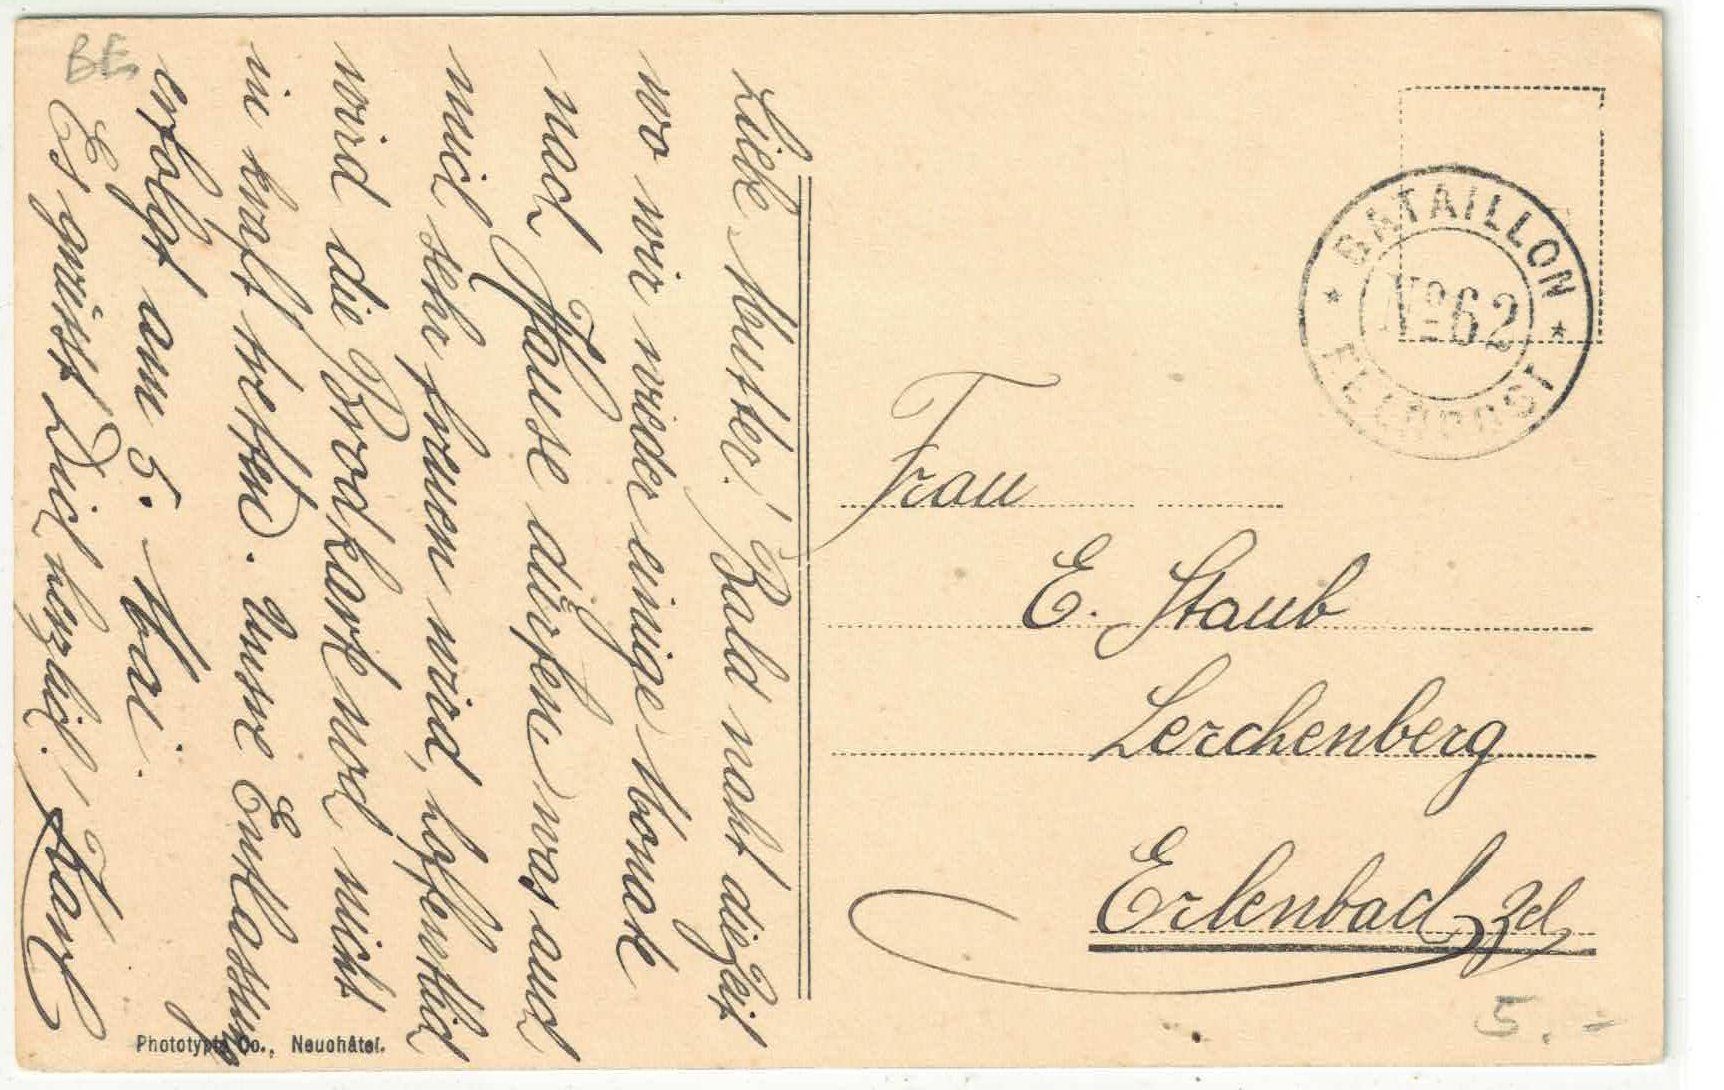 BE
Liebe Mutter! Bald naht die Zeit
wo wir wieder einige Monate
nach Hause dürfen was auch
mich sehr freuen wird, hoffentlich
wird die Brodkarte noch nicht
in kraft tretten. Unsre Entlassung
erfolgt am 5. Mai.
Es grüsst Dich herzlich! Karl
Phototypie Co., Neuchâtel.
BATAILLON
No 62
FELDPOST
Frau
E. Staub
Lerchenberg
Erlenbach Zch
5.-